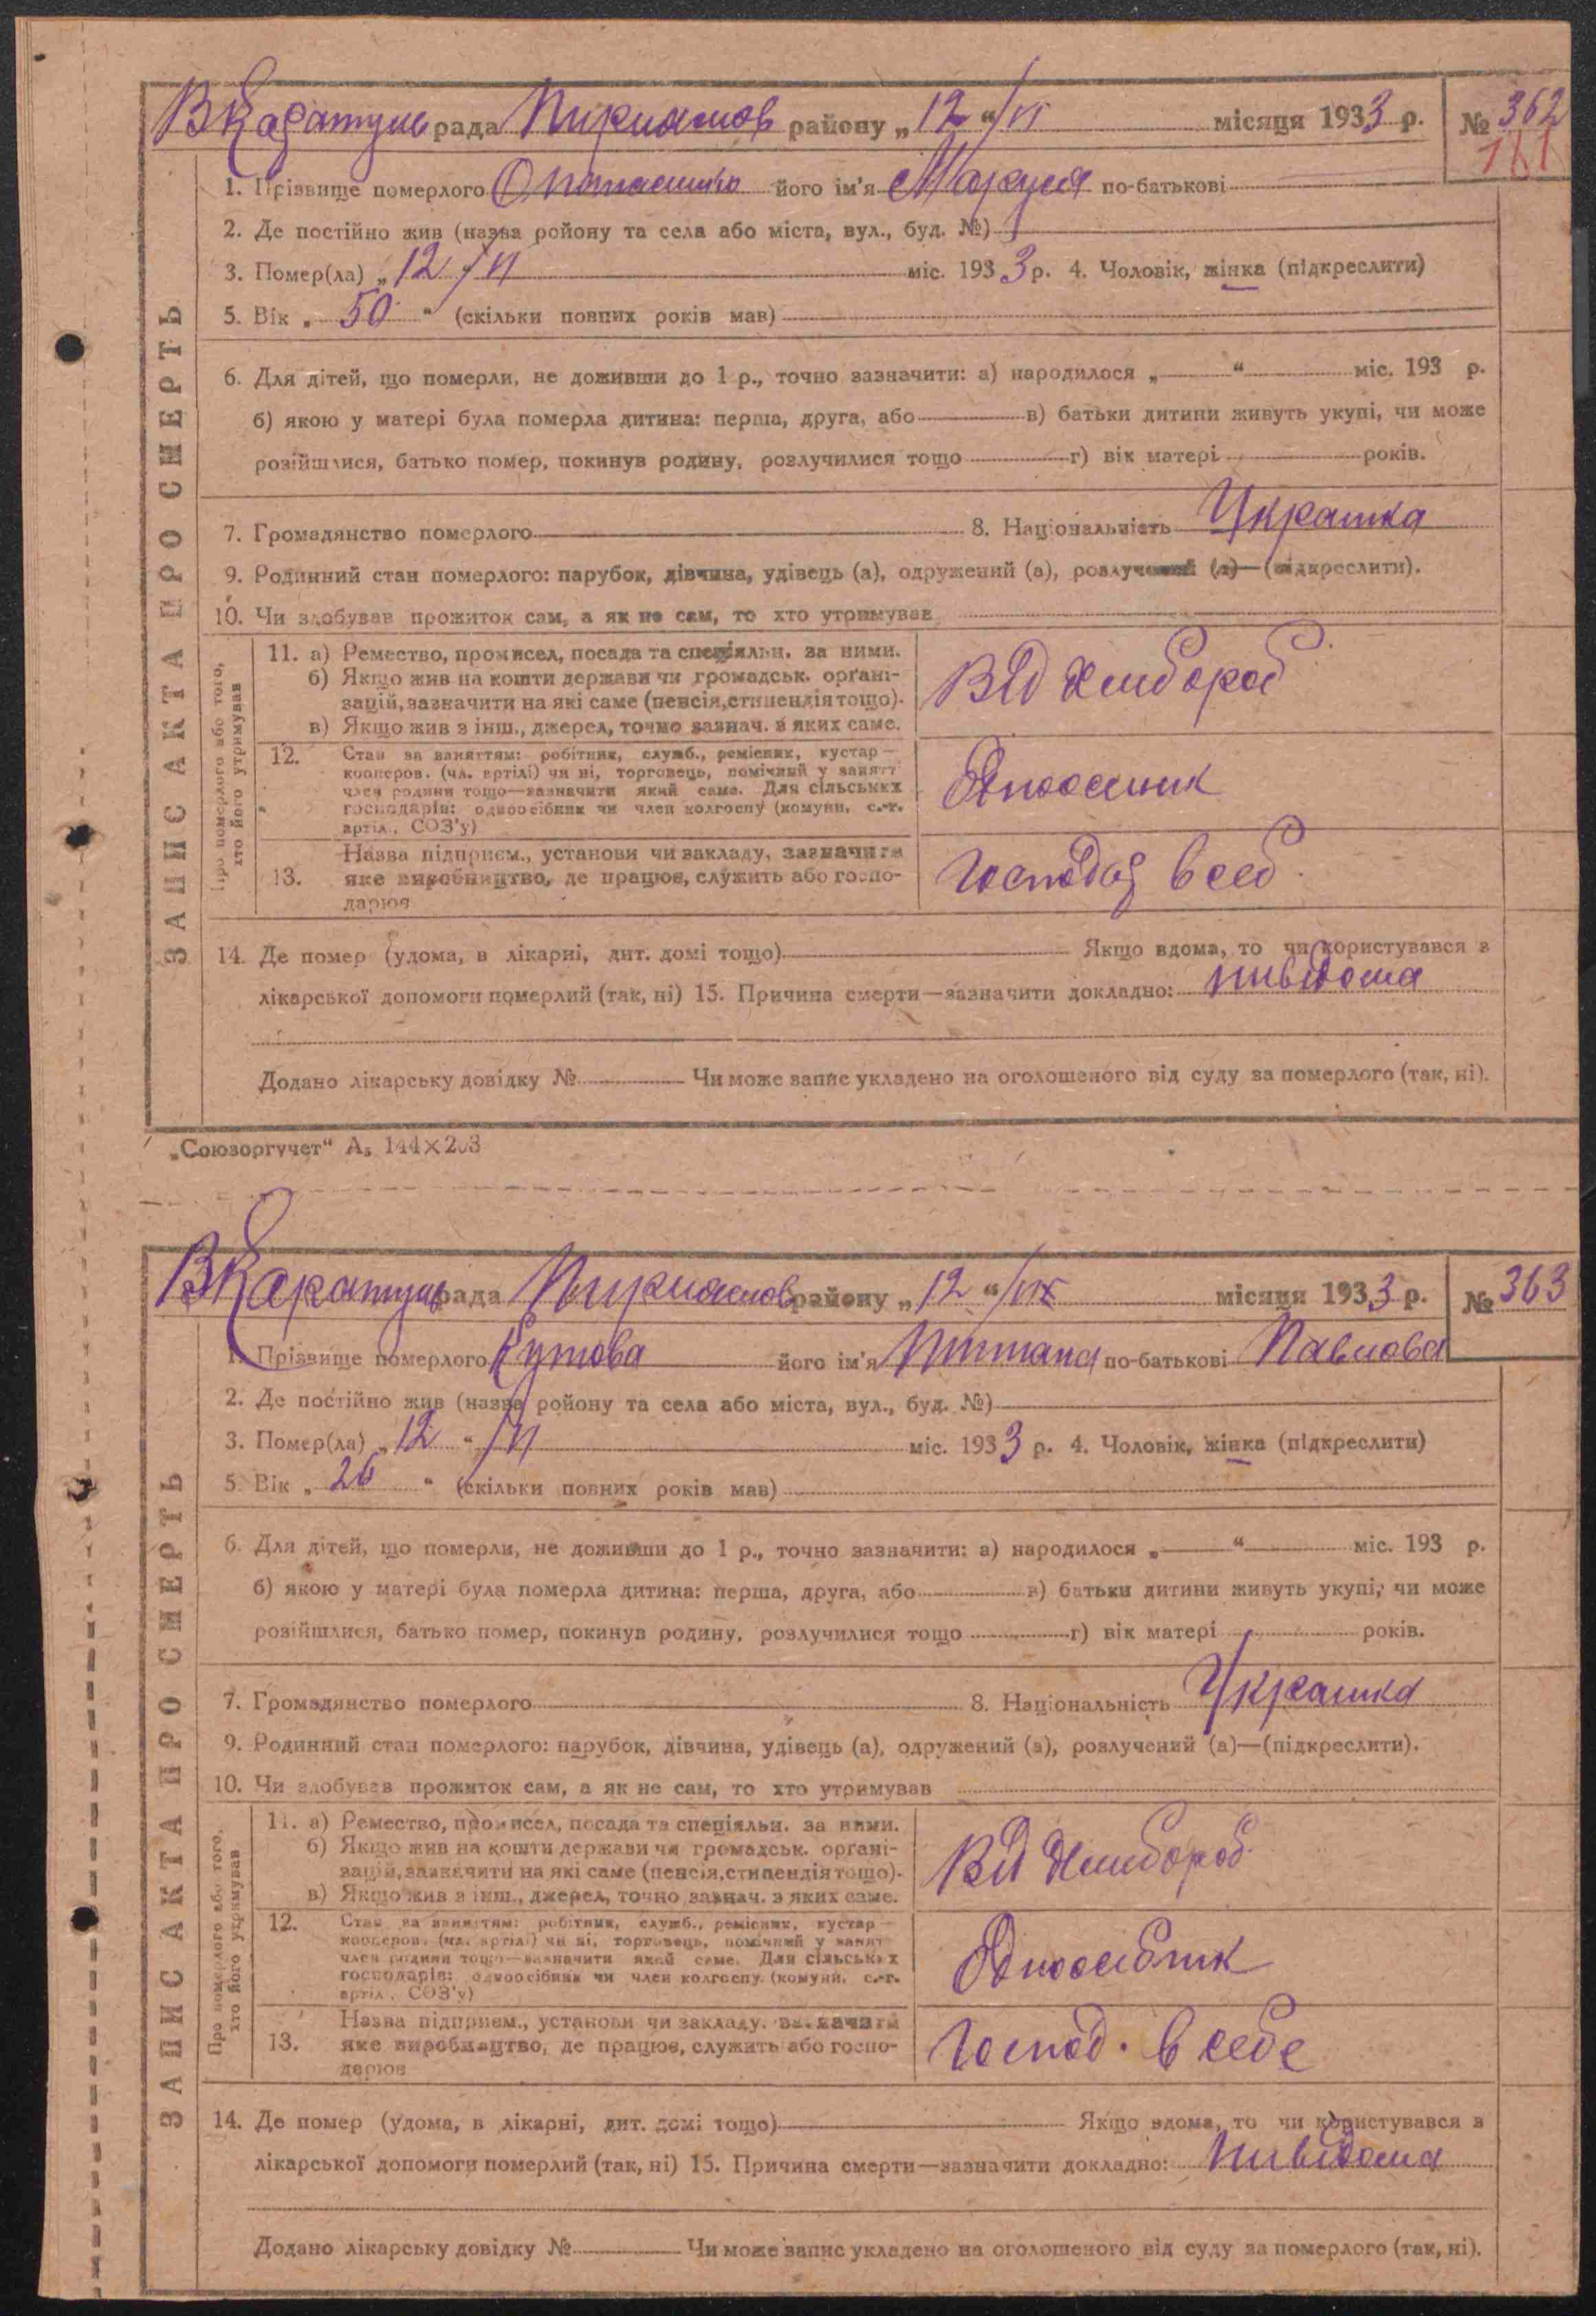 ЗАПИС АКТА ПРО СМЕРТЬ
ВКаратуль рада Пирнамов району „12“/VI місяця 1933 р. № 362
161
1. Прізвище померлого його ім'я Маруся по-батькові
2. Де постійно жив (назва ройону та села або міста, вул., буд. №)
3. Помер(ла) „12/VI міс. 1933 р. 4. Чоловік, жінка (підкреслити)
5. Вік „50“ (скільки повних років мав)
6. Для дітей, що померли, не доживши до 1 р., точно зазначити: а) народилося „ “ міс. 193 р.
б) якою у матері була померла дитина: перша, друга, або в) батьки дитини живуть укупі, чи може
розійшлися, батько помер, покинув родину, розлучилися тощо г) вік матері років.
7. Громадянство померлого 8. Національність Украінка
9. Родинний стан померлого: парубок, дівчина, удівець (а), одружений (а), розлучений (а)—(підкреслити).
10. Чи здобував прожиток сам, а як не сам, то хто утримував
Про померлого або того, хто його утримував
11. а) Ремество, промисел, посада та спеціяльн. за ними.
б) Якщо жив на кошти держави чи громадськ. орґані-
зацій, зазначити на які саме (пенсія, стипендія тощо).
в) Якщо жив з інш., джерел, точно зазнач. з яких саме.
Від хлибороб
12. Стан за заняттям: робітник, служб., ремісник, кустар—
кооперов. (чл. артілі) чи ні, торговець, помічний у занятт
член родини тощо—зазначити який саме. Для сільських
господарів: одноосібник чи член колгоспу (комуни, с.-г.
артіл., СОЗ'у)
Одноосиник
13. Назва підприєм., установи чи закладу, зазначити
яке виробництво, де працює, служить або госпо-
дарює
Господ в себ.
14. Де помер (удома, в лікарні, дит. домі тощо) Якщо вдома, то чи користувався з
лікарської допомоги померлий (так, ні) 15. Причина смерти—зазначити докладно: нивідома
Додано лікарську довідку № Чи може запис укладено на оголошеного від суду за померлого (так, ні).
„Союзоргучет“ А₅ 144×203
ЗАПИС АКТА ПРО СМЕРТЬ
ВКаратуль рада Пирнамов району „12“/VI місяця 1933 р. № 363
1. Прізвище померлого Кутова його ім'я по-батькові Павлова
2. Де постійно жив (назва ройону та села або міста, вул., буд. №)
3. Помер(ла) „12“/VI міс. 1933 р. 4. Чоловік, жінка (підкреслити)
5. Вік „26“ (скільки повних років мав)
6. Для дітей, що померли, не доживши до 1 р., точно зазначити: а) народилося „ “ міс. 193 р.
б) якою у матері була померла дитина: перша, друга, або в) батьки дитини живуть укупі, чи може
розійшлися, батько помер, покинув родину, розлучилися тощо г) вік матері років.
7. Громадянство померлого 8. Національність Украінка
9. Родинний стан померлого: парубок, дівчина, удівець (а), одружений (а), розлучений (а)—(підкреслити).
10. Чи здобував прожиток сам, а як не сам, то хто утримував
Про померлого або того, хто його утримував
11. а) Ремество, промисел, посада та спеціяльн. за ними.
б) Якщо жив на кошти держави чи громадськ. орґані-
зацій, зазначити на які саме (пенсія, стипендія тощо).
в) Якщо жив з інш., джерел, точно зазнач. з яких саме.
Від хлибороб
12. Стан за заняттям: робітник, служб., ремісник, кустар—
кооперов. (чл. артілі) чи ні, торговець, помічний у занят
член родини тощо—зазначити який саме. Для сільських
господарів: одноосібник чи член колгоспу (комуни, с.-г.
артіл., СОЗ'у)
Одноосибник
13. Назва підприєм., установи чи закладу, зазначити
яке виробництво, де працює, служить або госпо-
дарює
Господ. в себе
14. Де помер (удома, в лікарні, дит. домі тощо) Якщо вдома, то чи користувався з
лікарської допомоги померлий (так, ні) 15. Причина смерти—зазначити докладно: нивідома
Додано лікарську довідку № Чи може запис укладено на оголошеного від суду за померлого (так, ні).